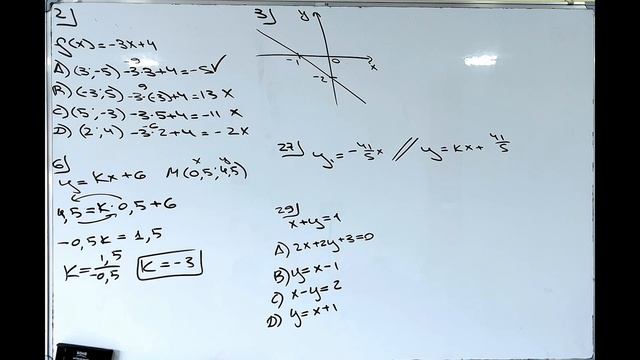 2)
f(x)=-3x+4
A) (3;-5) -3·3+4=-5✓
9
B) (-3;5) -3·(-3)+4=13 x
9
C) (5;-3) -3·5+4=-11 x
D) (2;4) -3·2+4=-2x
-6
6)
y=kx+6 M(0,5;4,5)
x y
4,5=k·0,5+6
-0,5k=1,5
k=1,5/-0,5 k=-3
3)
y
-1 0 x
-2
27) y₁=-41/5x // y=kx+41/5
29)
x+y=1
A) 2x+2y+3=0
B) y=x-1
C) x-y=2
D) y=x+1